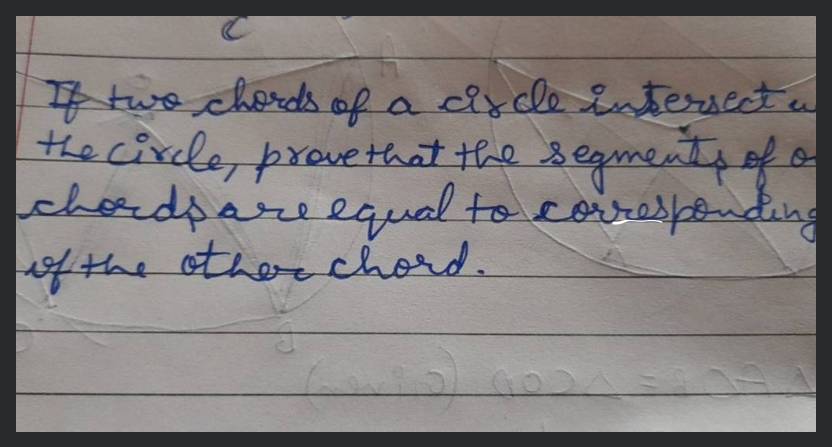 C
If two chords of a circle intersect w
the circle, prove that the segments of o
chords are equal to corresponding
of the other chord.